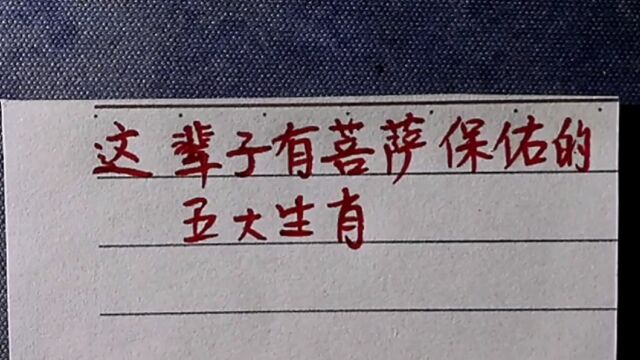 这辈子有菩萨保佑的
五大生肖